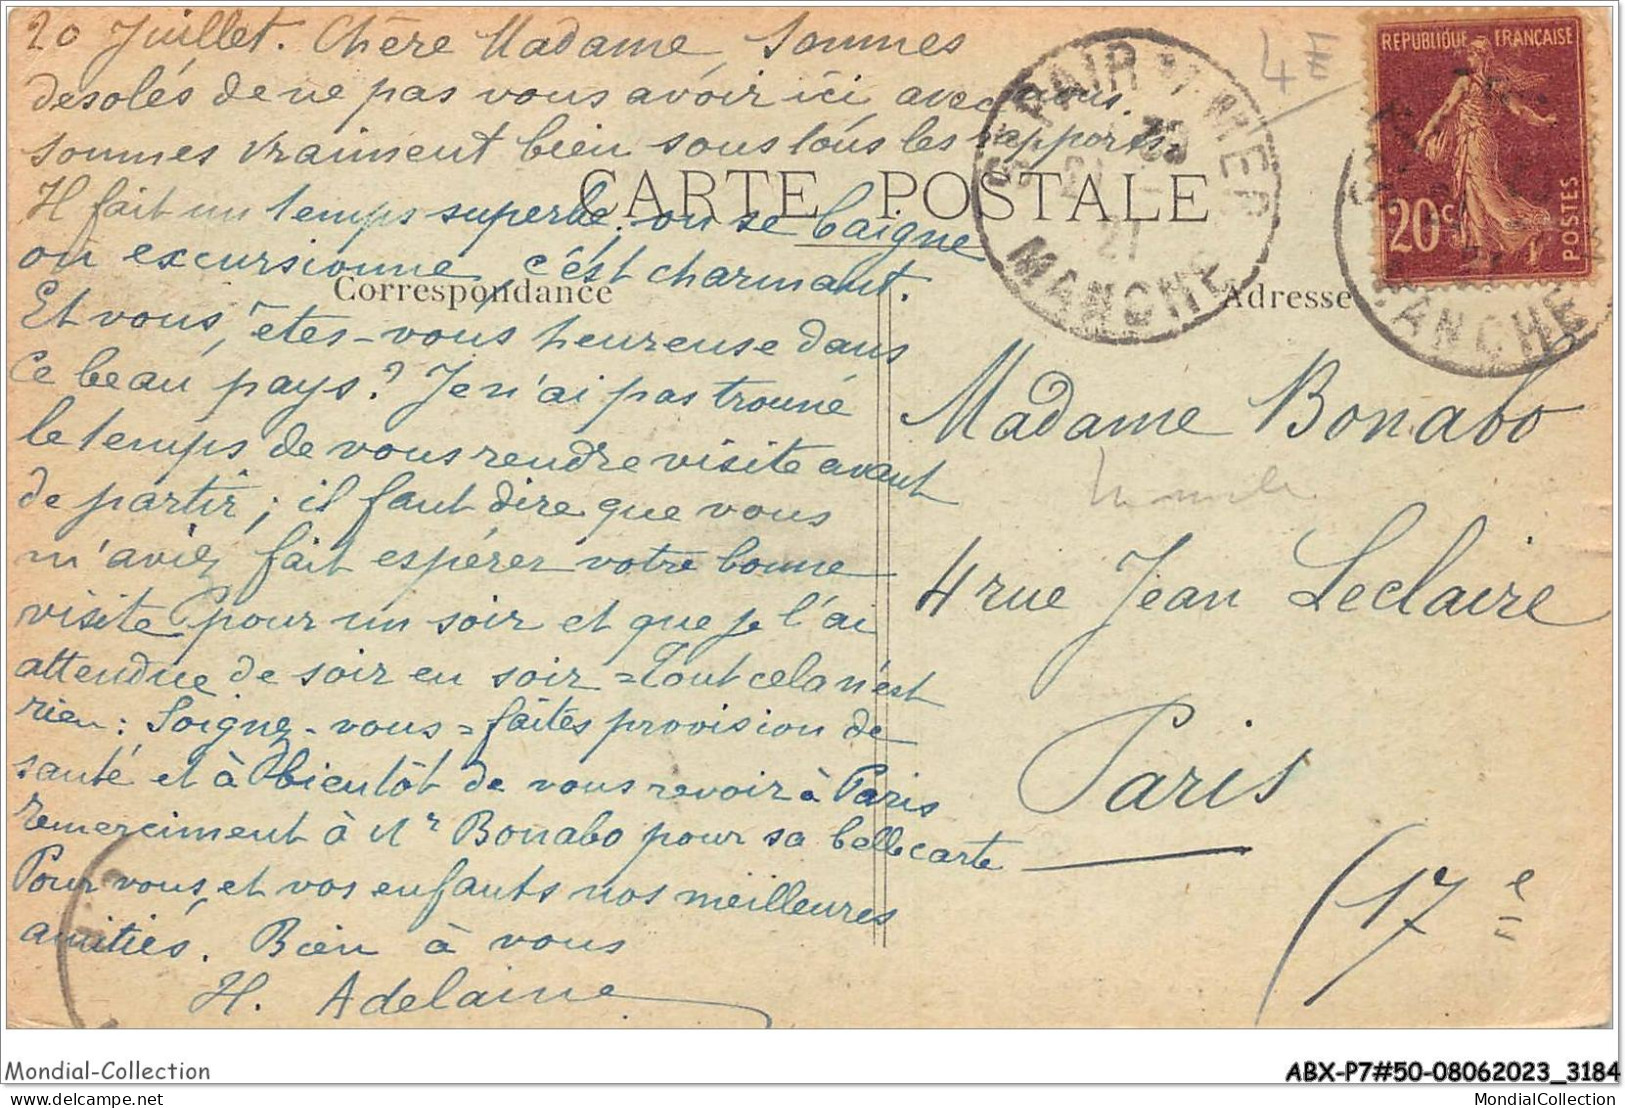 20 Juillet. Chère Madame, Sommes
desolés de ne pas vous avoir ici avec nous.
sommes vraiment bien sous tous les rapports.
Il fait un temps superbe, on se baigne
on excursionne, c'est charmant.
Et vous, êtes-vous heureuse dans
ce beau pays? Je n'ai pas trouvé
le temps de vous rendre visite avant
de partir; il faut dire que vous
m'aviez fait espérer votre bonne
visite pour un soir et que je l'ai
attendue de soir en soir = Tout cela n'est
rien: Soignez-vous = faites provision de
santé et à bientôt de vous revoir à Paris
remerciment à Mr Bonabo pour sa belle carte
Pour vous et vos enfants nos meilleures
amitiés. Bien à vous
H. Adelaine
CARTE POSTALE
Correspondance
Adresse
4E
St PAIR S/ MER
30
21 -
27
MANCHE
REPUBLIQUE FRANÇAISE
20c
POSTES
MANCHE
Madame Bonabo
4 rue Jean Leclaire
Paris
(17e
Mondial-Collection
ABX-P7#50-08062023_3184
delcampe.net
MondialCollection